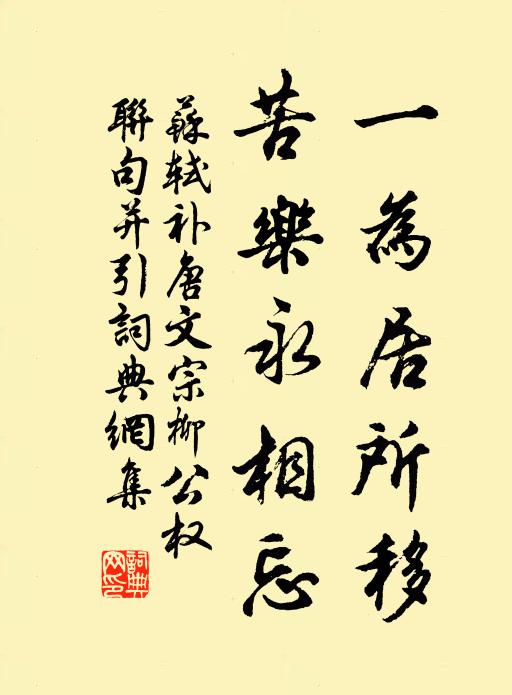 一為居所移
苦樂永相忘
蘇軾补唐文宗柳公权
聯句并引詞典網集
詞典網印